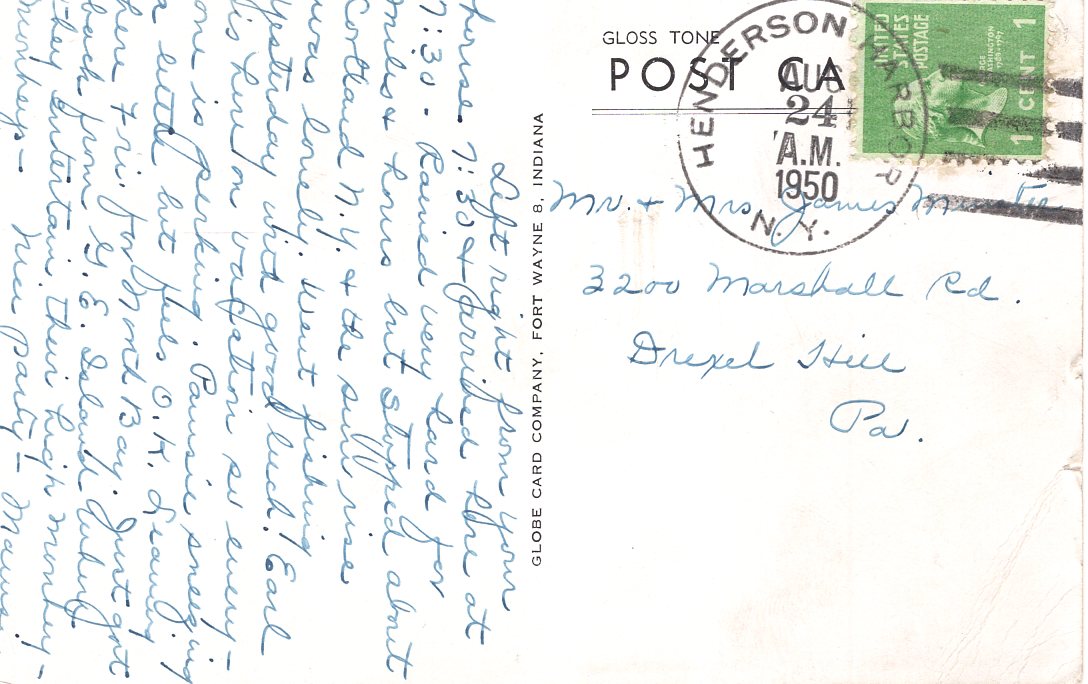 Left right from your
house 7:30 & arrived here at
7:30 - Rained very hard for
miles & hours but stopped about
Cortland N.Y. & the sun rise
was lovely. Went fishing
yesterday with good luck. Earl
is here on vacation so every-
one is perking. Pansie sneezing
a little but feels O.K. Leaving
here Fri. for Mont Bay. Just got
back from G.E. Island where
they entertain their high monkey-
monkeys - Nice party -
GLOBE CARD COMPANY, FORT WAYNE 8, INDIANA
GLOSS TONE
POST CA
HENDERSON HARBOR
AUG
24
A.M.
1950
N.Y.
UNITED
STATES
POSTAGE
WASHINGTON
1789-1797
1 CENT 1
Mr. & Mrs. James
3200 Marshall Rd.
Drexel Hill
Pa.